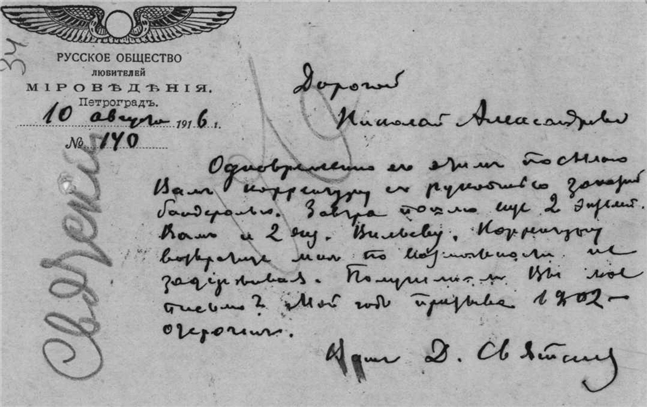 34
РУССКОЕ ОБЩЕСТВО
ЛЮБИТЕЛЕЙ
МІРОВѢДѢНІЯ.
Петроградъ.
10 августа 1916 г.
№ 140
Святский
Дорогой
Николай Александрович
Одновременно съ этимъ посылаю
Вамъ корректуру съ рукописью заказной
бандеролью. Завтра пошлю еще 2 экземпл.
Вамъ и 2 экз. Вильеву. Корректуру
возвратите мнѣ по возможности не
задерживая. Получили ли Вы мое
письмо? Мой годъ призыва 1902 –
отсрочили.
Вашъ Д. Святский